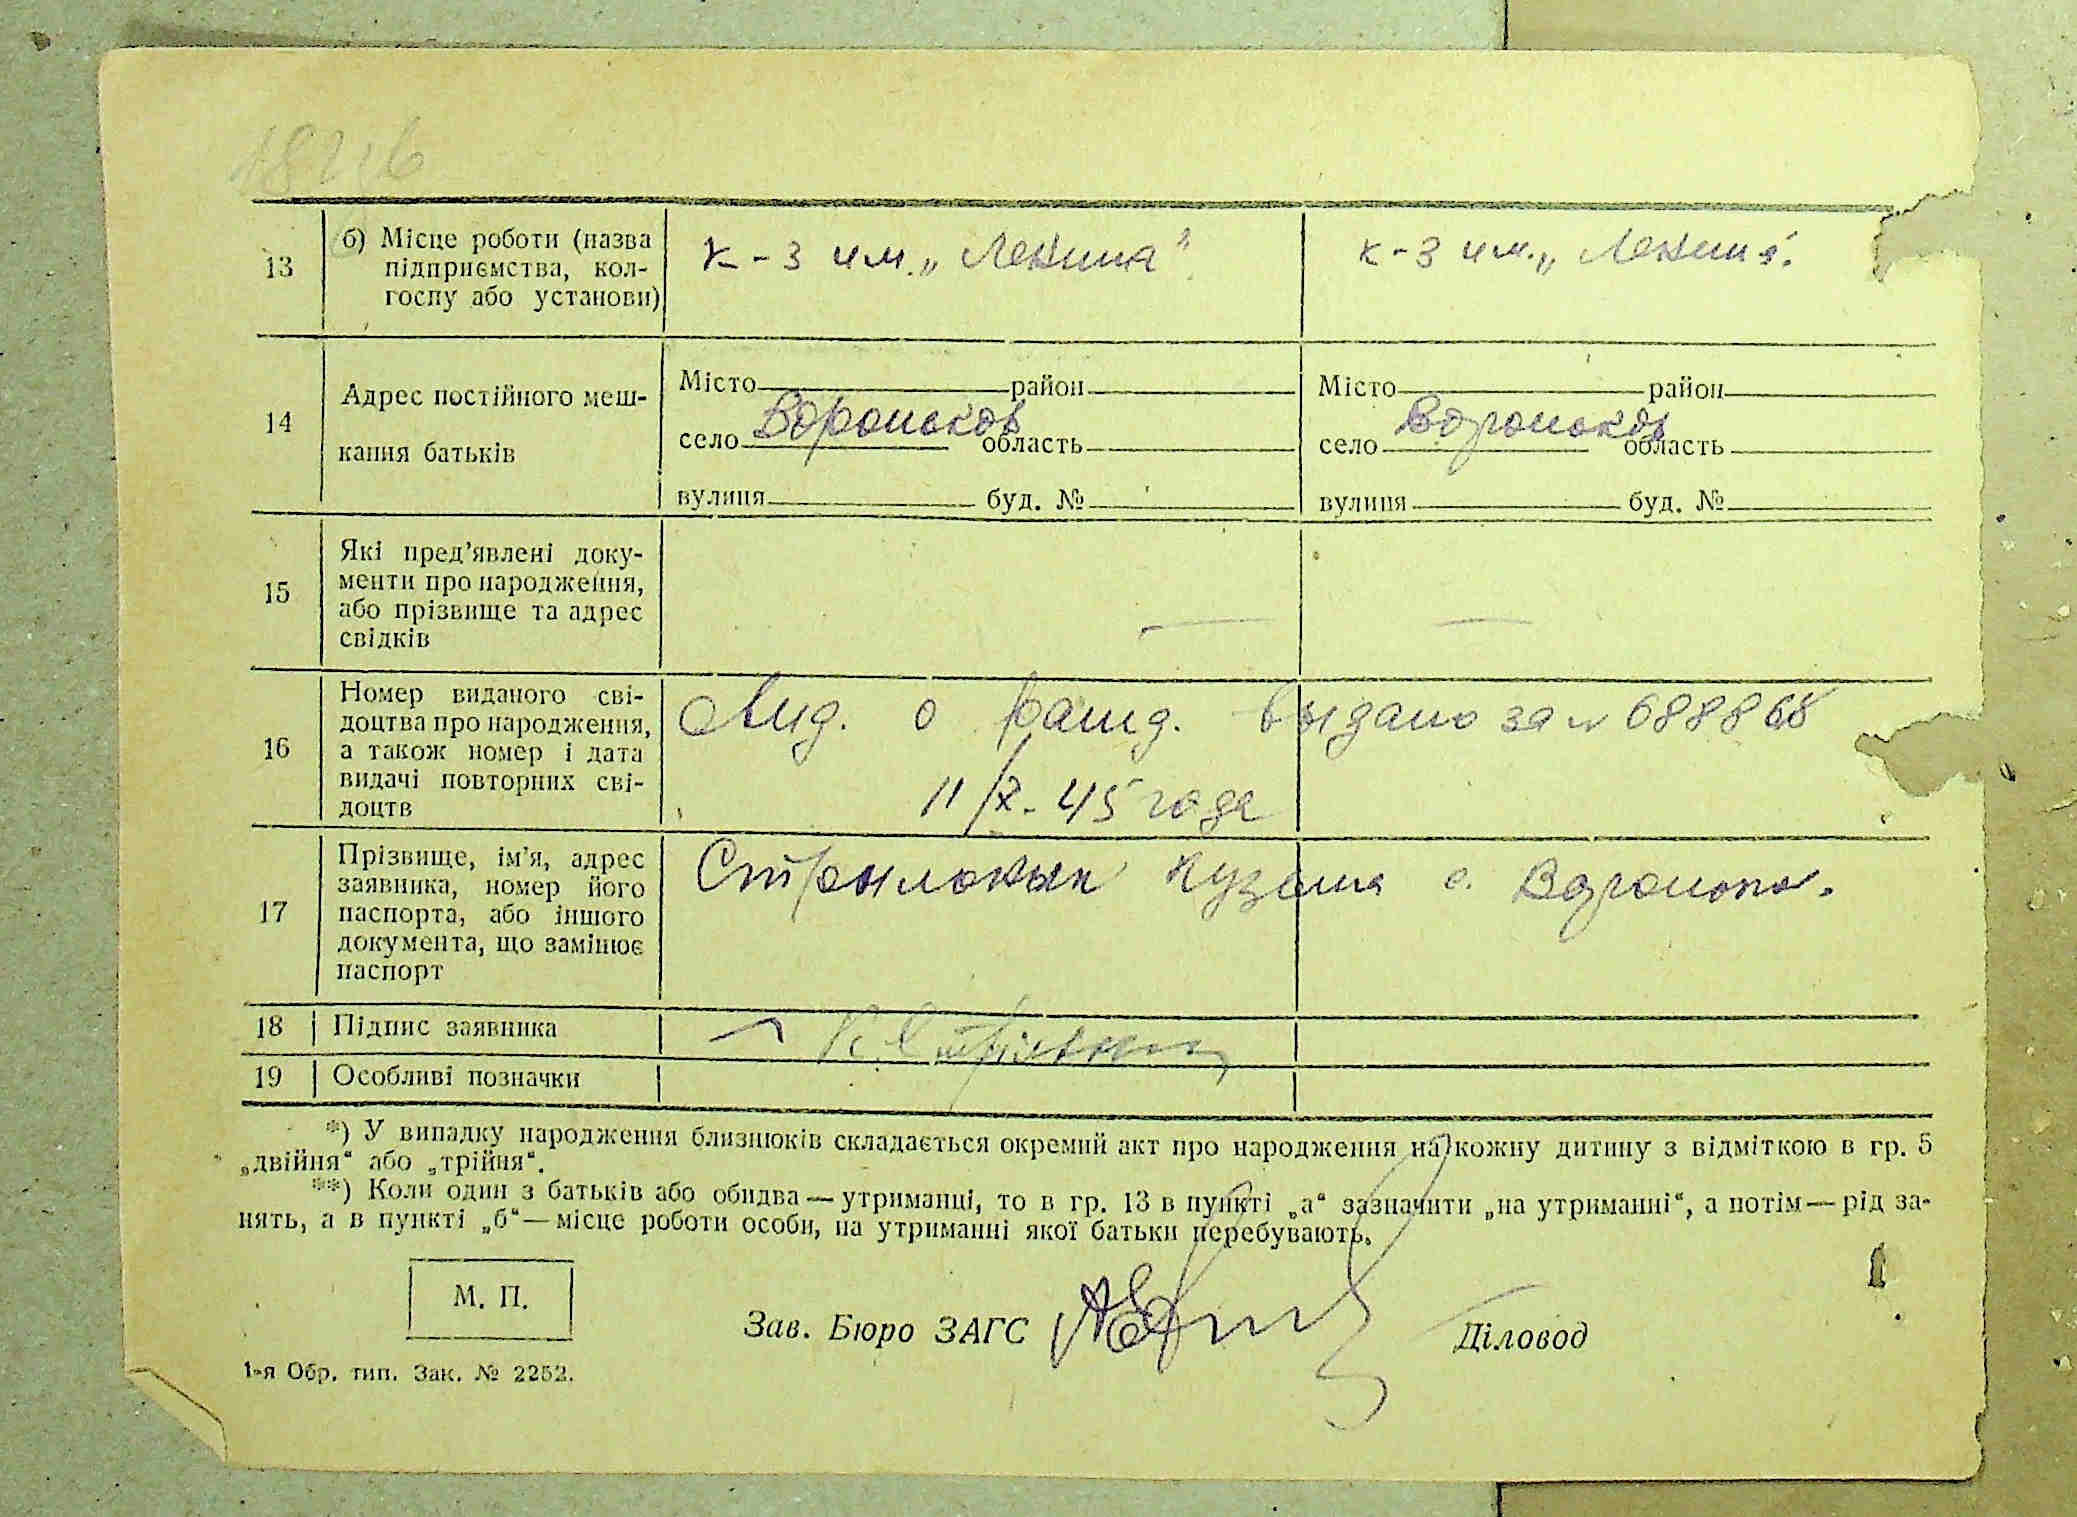 13
б) Місце роботи (назва
підприємства, кол-
госпу або установи)
к-з им. „Ленина"
к-з им. „Ленина".
14
Адрес постійного меш-
кання батьків
Місто район
село Вороньков область
вулиця буд. №
Місто район
село Вороньков область
вулиця буд. №
15
Які пред’явлені доку-
менти про народження,
або прізвище та адрес
свідків
16
Номер виданого сві-
доцтва про народження,
а також номер і дата
видачі повторних сві-
доцтв
о выдано за № 688868
11/X-45 года
17
Прізвище, ім’я, адрес
заявника, номер його
паспорта, або іншого
документа, що замінює
паспорт
Кузьма с.
18
Підпис заявника
19
Особливі позначки
*) У випадку народження близнюків складається окремий акт про народження на кожну дитину з відміткою в гр. 5
„двійня“ або „трійня“.
**) Коли один з батьків або обидва — утриманці, то в гр. 13 в пункті „а“ зазначити „на утриманні“, а потім — рід за-
нять, а в пункті „б“ — місце роботи особи, на утриманні якої батьки перебувають.
М. П.
Зав. Бюро ЗАГС
Діловод
1-я Обр. тип. Зак. № 2252.